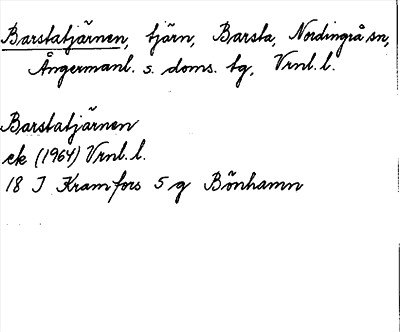 Barstatjärnen, tjärn, Barsta, Nordingrå sn,
Ångermanl. s. doms. tg, Vrnl. l.
Barstatjärnen
ek (1964) Vrnl. l.
18 I Kramfors 5 g Bönhamn